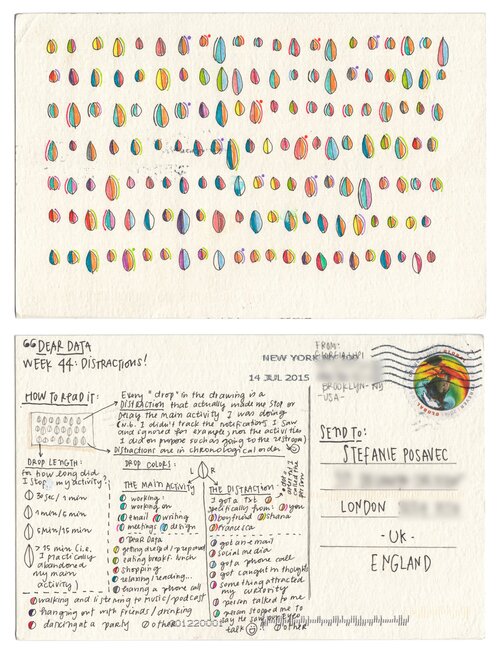 DEAR DATA
WEEK 44: DISTRACTIONS!
HOW TO READ IT:
Every "drop" in the drawing is a
DISTRACTION that actually made me stop or
delay the main activity I was doing
(N.b. I didn't track the notifications I saw
and ignored for example, nor the activities
I did on purpose such as going to the restroom)
Distractions are in chronological order
DROP LENGTH:
for how long did
I stop my activity?
30 sec / 1 min
1 min / 5 min
5 min / 15 min
> 15 min (i.e.
I practically
abandoned
my main
activity)
DROP COLORS:
L R
THE MAIN ACTIVITY
working:
working on
email writing
meetings design
Dear Data
getting dressed / prepared
eating breakf. lunch
shopping
relaxing / reading...
having a phone call
walking and listening to music/podcast
hanging out with friends / drinking
dancing at a party other
THE DISTRACTION:
I got a txt
specifically from: you
boyfriend Shana
Francesca
got an e-mail
social media
got a phone call
got caught in thoughts
something attracted
my curiosity
person talked to me
person stopped me to
say
talk other
NEW YORK NY 100
14 JUL 2015
FROM:
BROOKLYN - NY
- USA -
SEND TO:
STEFANIE POSAVEC
LONDON
- UK -
ENGLAND